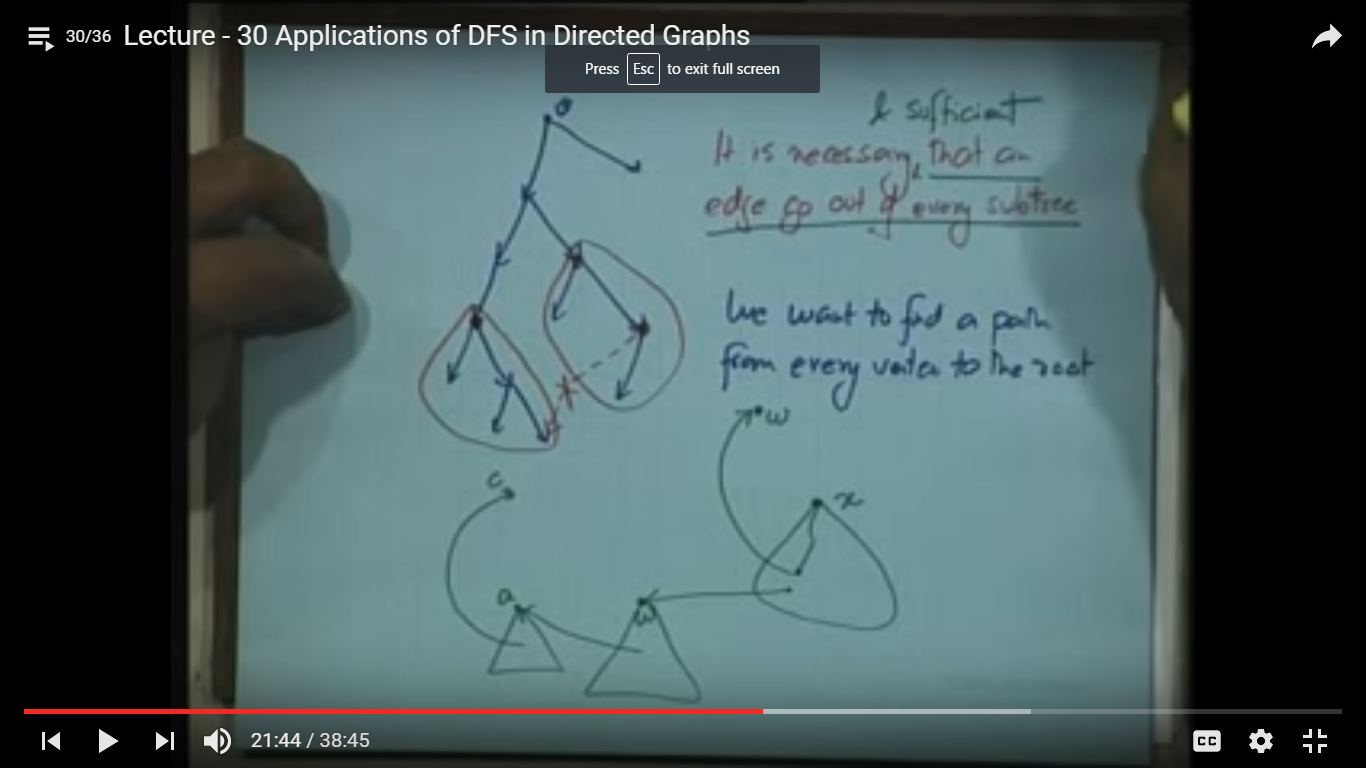 30/36 Lecture - 30 Applications of DFS in Directed Graphs
Press Esc to exit full screen
& sufficient
It is necessary that an
edge go out of every subtree
We want to find a path
from every vertex to the root
w
x
c
a
w
21:44 / 38:45
CC